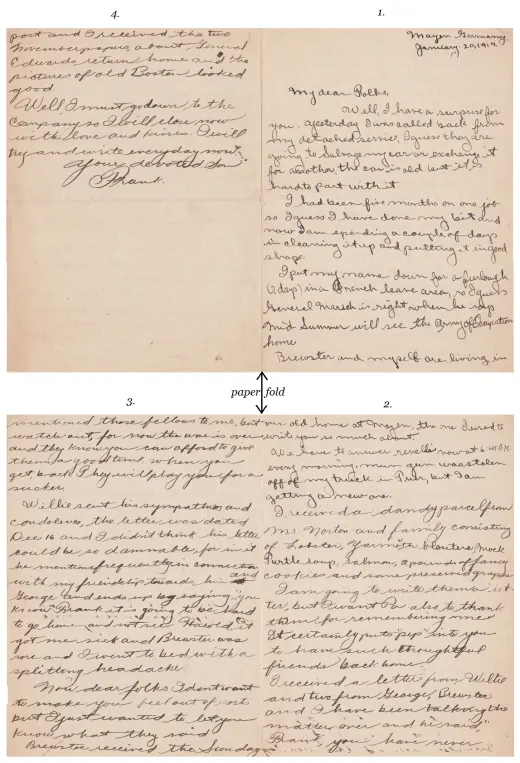 1.
Mayen Germany
January 20, 1919.
My dear Folks,
Well, I have a surprise for
you, yesterday I was called back from
my detached service, I guess they are
going to salvage my car or exchange it
for another, the car is old but it is
hard to part with it
I had been five months on one job
so I guess I have done my bit and
now I am spending a couple of days
in cleaning it up and putting it in good
shape
I put my name down for a furlough
(7 days) in a French leave area, so I guess
General March is right when he says
Mid Summer will see the Army of Occupation
home
Brewster and myself are living in
paper fold
2.
our old home at Mayen, the one I used to
write you so much about.
We have to answer reveille now at 6:45 A.M.
every morning, my gun was stolen
off of my truck in Paris, but I am
getting a new one.
I received a dandy parcel from
Mr Norton and family consisting
of Lobster, Yarmouth bloaters, Mock
Turtle soup, salmon, 2 pounds of fancy
cookies and some preserved grapes
I am going to write them a let-
ter, but I want Pa also to thank
them for remembering me
It certainly puts "pep" into you
to have such thoughtful
friends back home.
I received a letter from Willie
and two from George, Brewster
and I have been talking the
matter over and he said,
"Frank, you have never
3.
mentioned those fellows to me, but
watch out, for now the war is over
and they know you can afford to give
them a good time when you
get back. They will play you for a
sucker.
Willie sent his sympathies and
condolences, the letter was dated
Dec 16 and I didn't think his letter
could be so damnable, for in it
he mentioned frequently in connection
with my friendship towards him and
George and ends up by saying, "you
know Frank it is going to be hard
to go home and not see Harold," it
got me sick and Brewster was
sore and I went to bed with a
splitting headache.
Now dear folks I don't want
to make you feel out of sorts
but I just wanted to let you
know what they said
Brewster received the Sunday
4.
post and I received the two
November papers, about General
Edwards return home and the
pictures of old Boston looked
good
Well I must go down to the
Company so I will close now
with love and kisses. I will
try and write everyday now,
Your devoted Son
Frank.